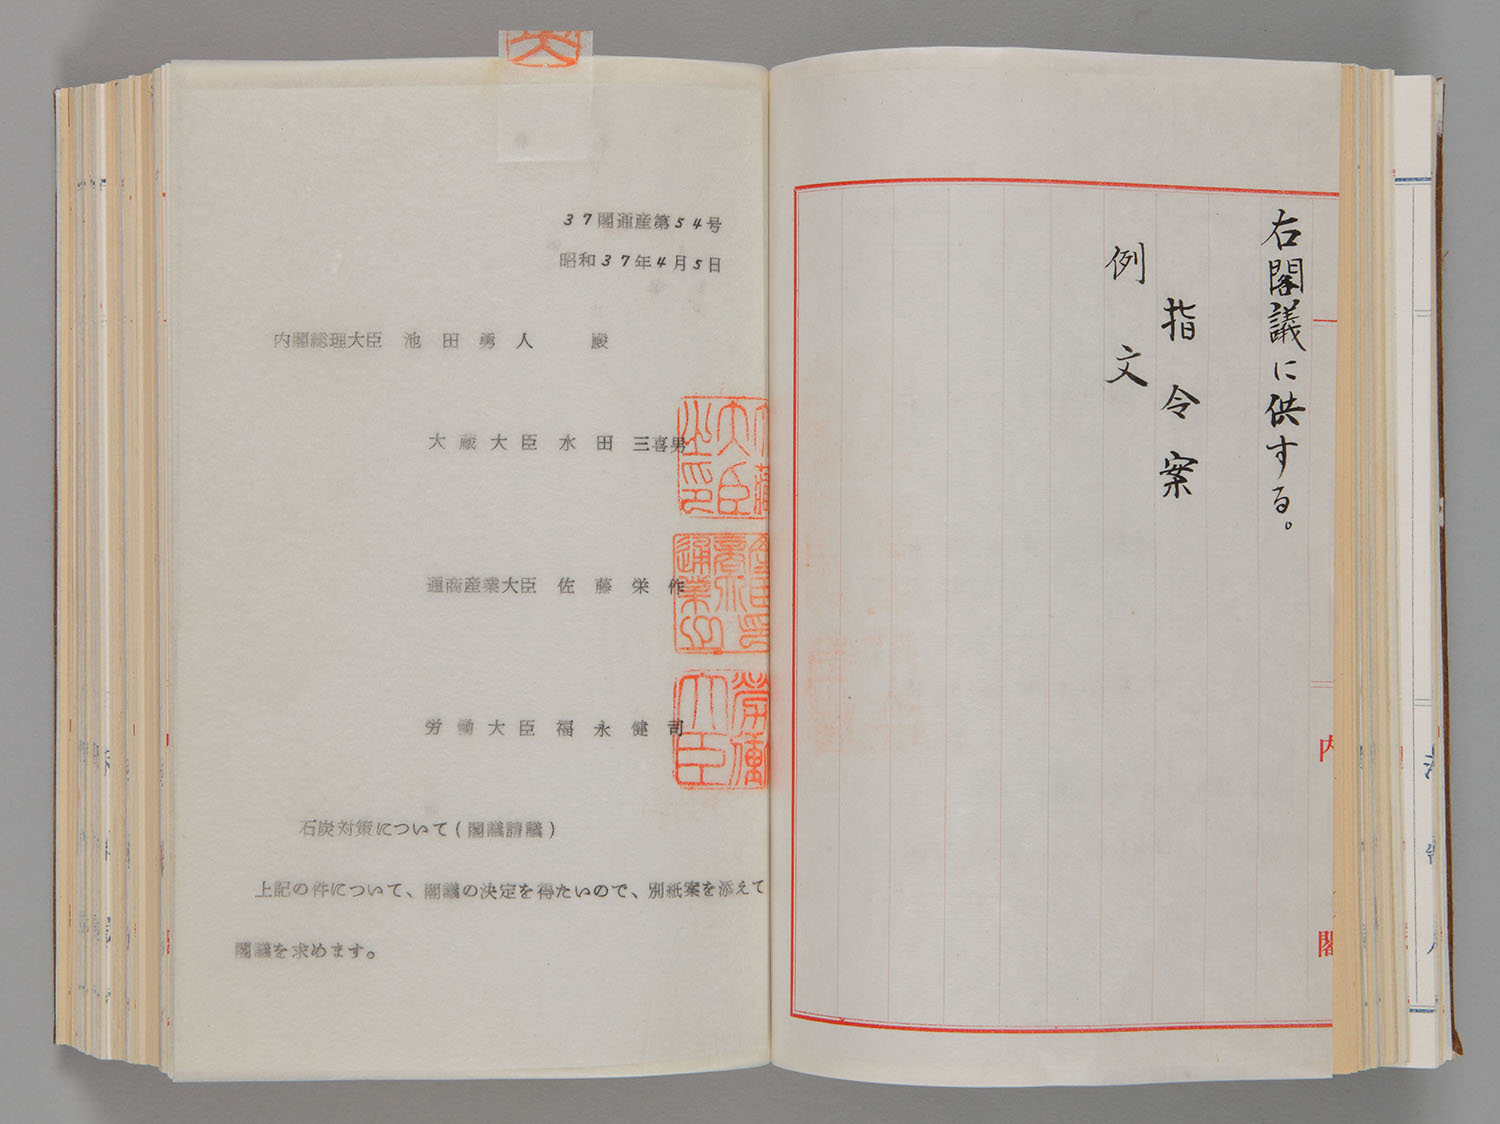 右閣議に供する。
指令案
例文
内閣
37閣通産第54号
昭和37年4月5日
内閣総理大臣 池田勇人 殿
大蔵大臣 水田三喜男
通商産業大臣 佐藤栄作
労働大臣 福永健司
石炭対策について(閣議請議)
上記の件について、閣議の決定を得たいので、別紙案を添えて
閣議を求めます。